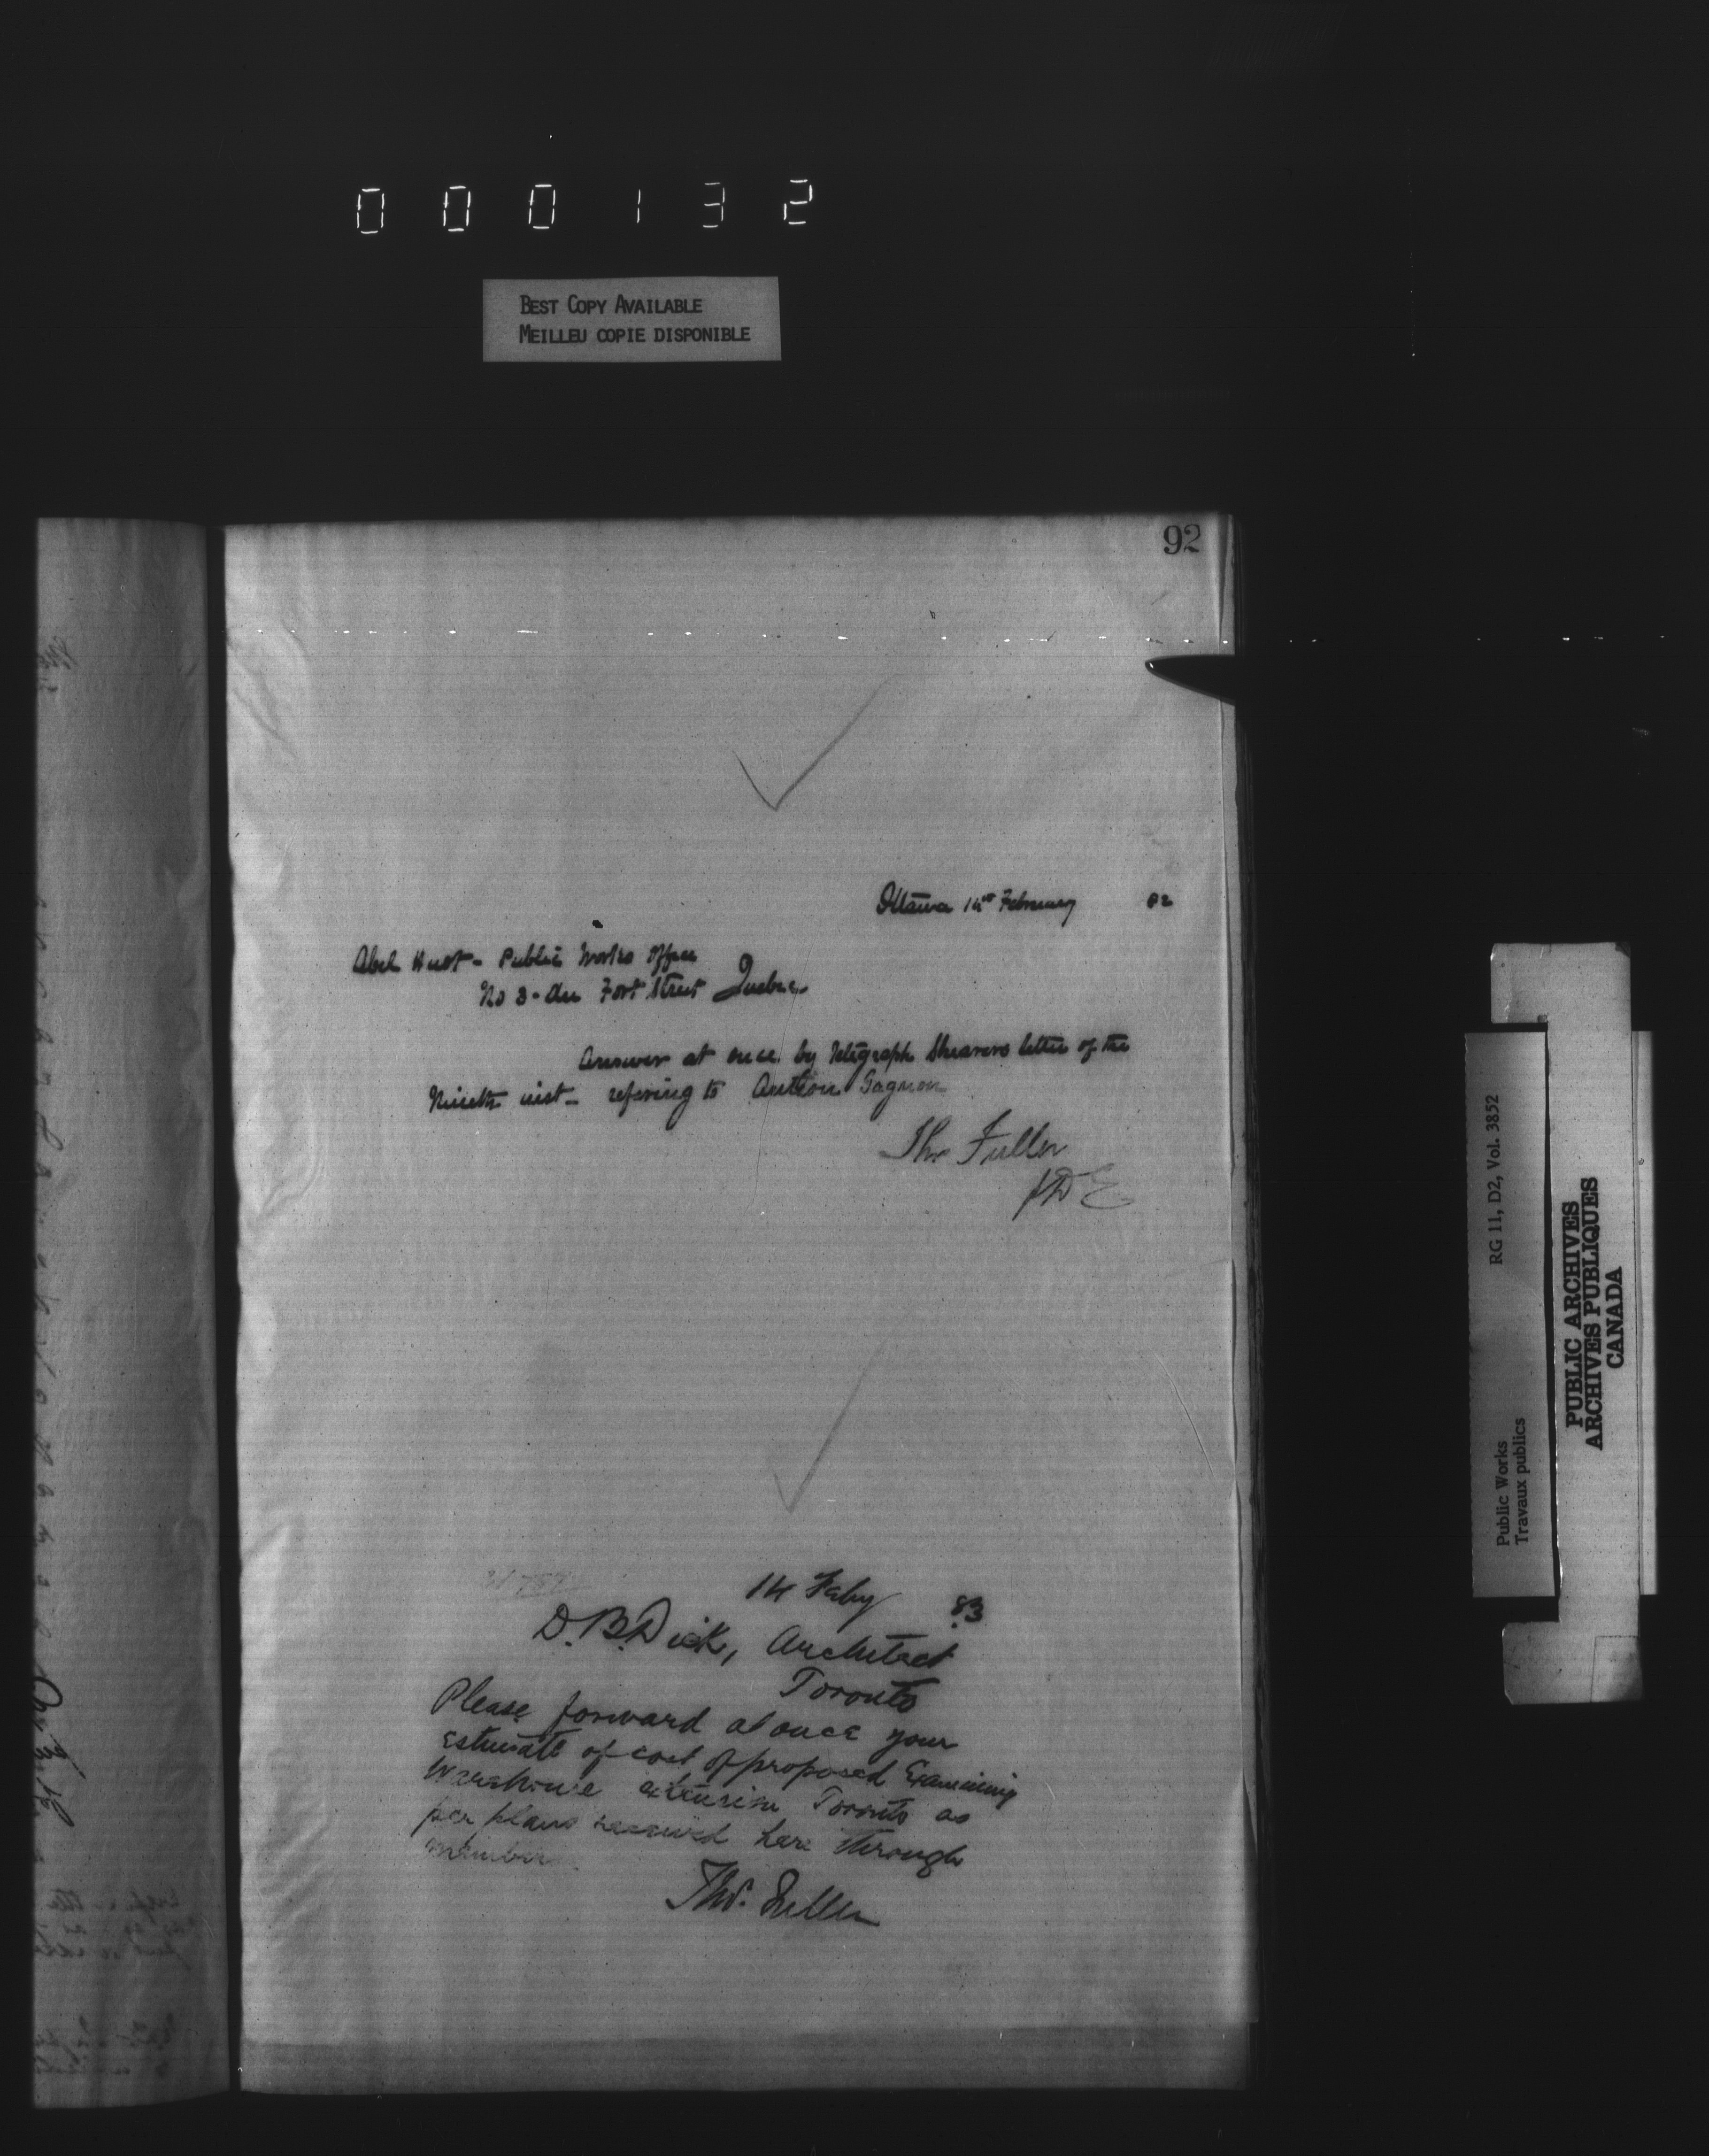 000132
BEST COPY AVAILABLE
MEILLEU COPIE DISPONIBLE
92
Ottawa 14th February 82
Abel Huot - Public Works Office
No 3 - du Fort Street Quebec
Answer at once by telegraph Shearers letter of the
Nineth inst - refering to Gagnon
Thos Fuller
14 Feby 83
D. B. Dick, Architect
Toronto
Please forward at once your
estimate of cost of proposed Examining
Warehouse extension Toronto as
per plans received here through
member
Thos. Fuller
RG 11, D2, Vol. 3852
Public Works
Travaux publics
PUBLIC ARCHIVES
ARCHIVES PUBLIQUES
CANADA